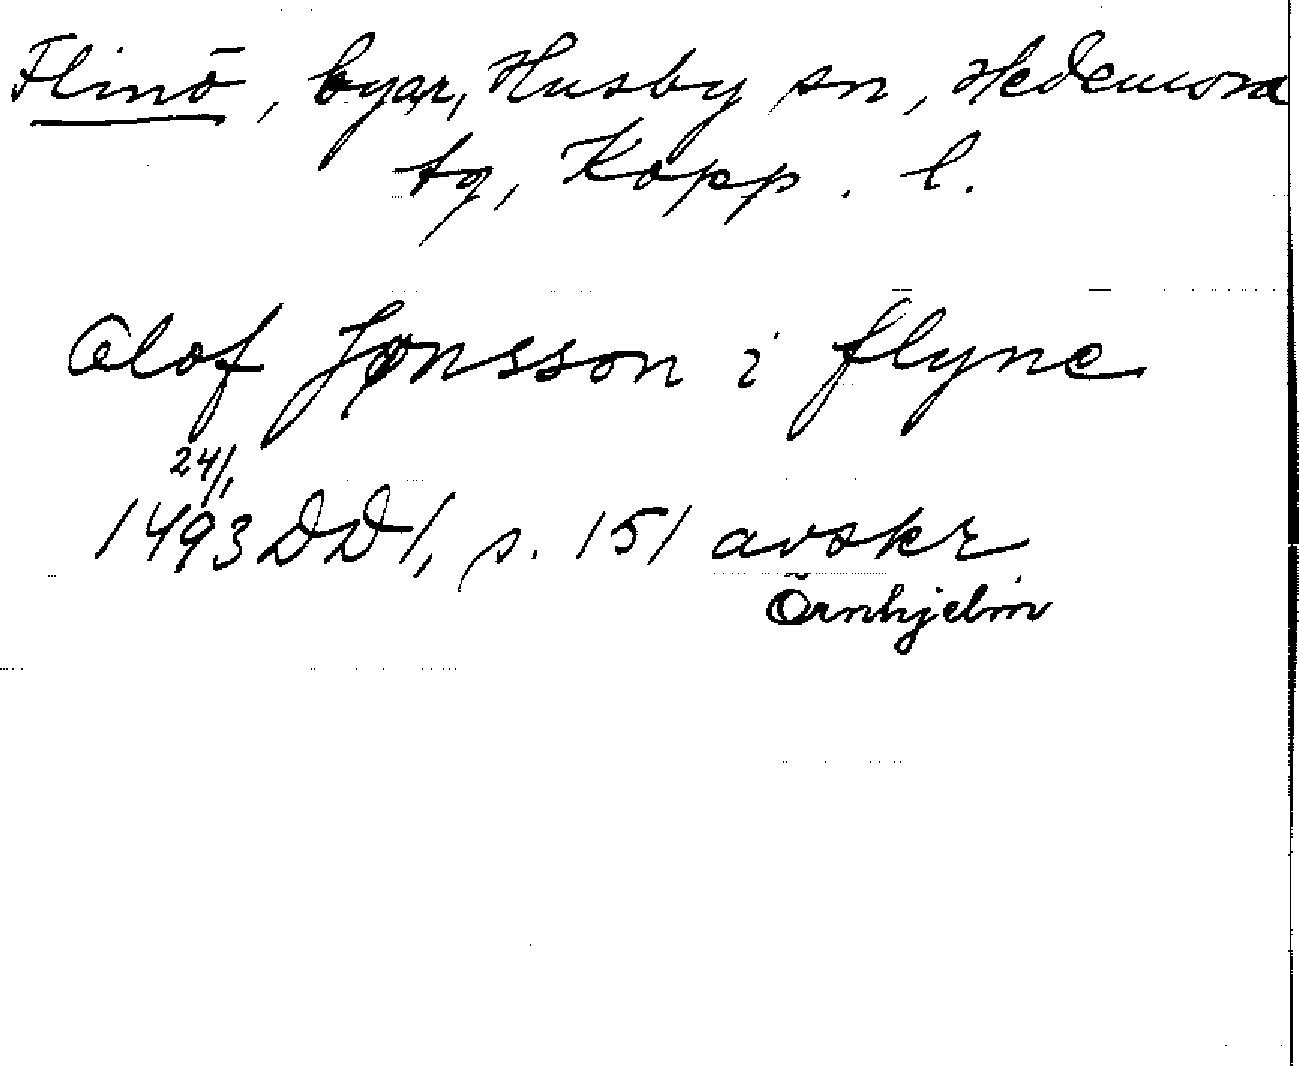 Flinö, byar, Husby sn, Hedemora
tg, Kopp. l.
Olof Jønsson i flyne
24/1
1493 DD1, s. 151 avskr
Örnhjelm